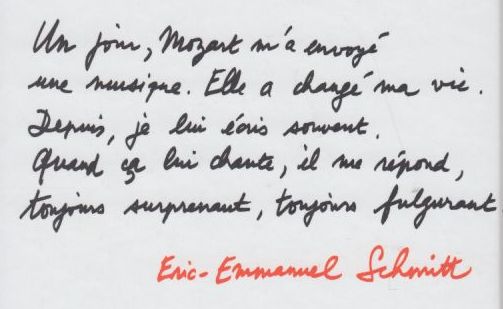 Un jour, Mozart m'a envoyé
une musique. Elle a changé ma vie.
Depuis, je lui écris souvent.
Quand ça lui chante, il me répond,
toujours surprenant, toujours fulgurant
Eric-Emmanuel Schmitt